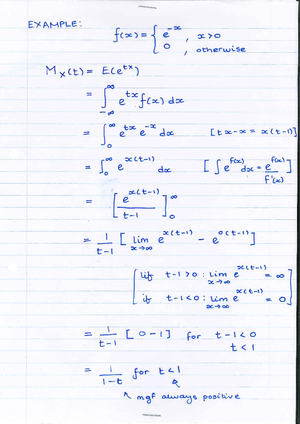 EXAMPLE:
f(x) = { e^{-x} , x>0
0 , otherwise
M_X(t) = E(e^{tx})
= ∫_{-∞}^{∞} e^{tx} f(x) dx
= ∫_0^∞ e^{tx} e^{-x} dx [tx-x = x(t-1)]
= ∫_0^∞ e^{x(t-1)} dx [∫ e^{f(x)} dx = e^{f(x)} / f'(x)]
= [e^{x(t-1)} / t-1]_0^∞
= 1/t-1 [ lim_{x→∞} e^{x(t-1)} - e^{0(t-1)} ]
[ if t-1>0 : lim_{x→∞} e^{x(t-1)} = ∞
if t-1<0 : lim_{x→∞} e^{x(t-1)} = 0 ]
= 1/t-1 [ 0-1 ] for t-1<0
t<1
= 1/1-t for t<1
mgf always positive